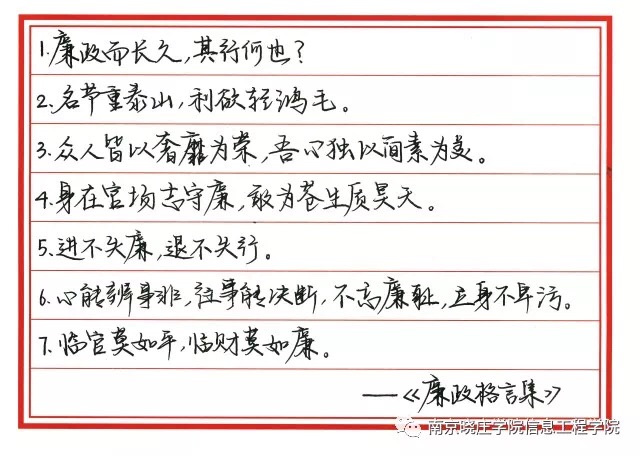 1.廉政而长久,其行何也?
2.名节重泰山,利欲轻鸿毛。
3.众人皆以奢靡为荣,吾心独以简素为美。
4.身在官场志守廉,敢为苍生质昊天。
5.进不失廉,退不失行。
6.心能辨事非,往事能决断,不忘廉耻,立身不卑污。
7.临官莫如平,临财莫如廉。
——《廉政格言集》
南京晓庄学院信息工程学院